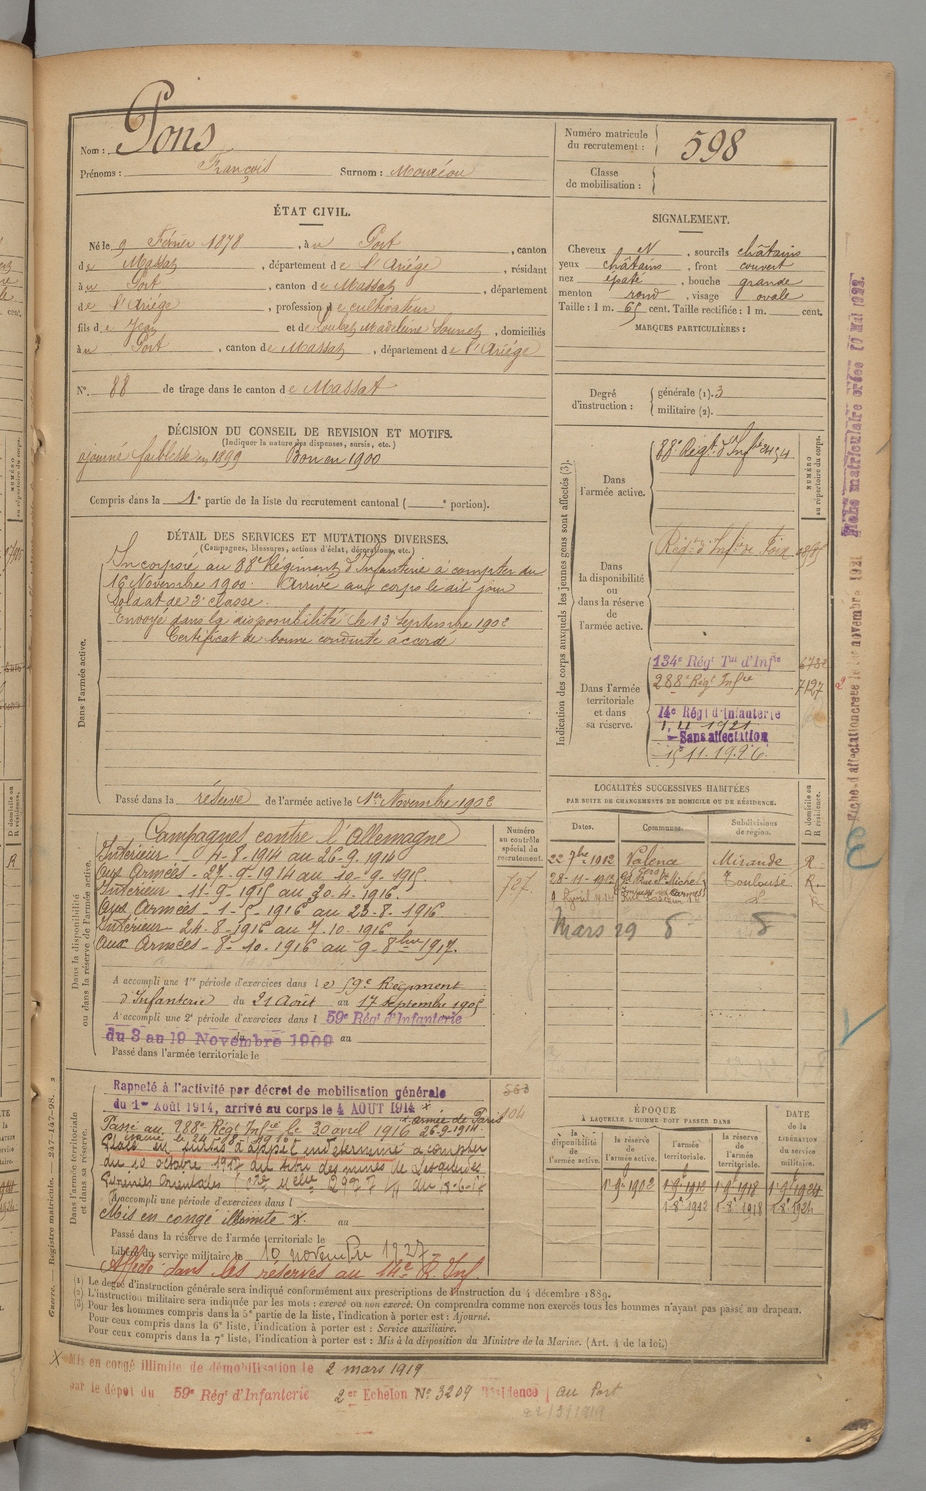 Nom : Pons
Prénoms : François Surnom : Mouréou
Numéro matricule du recrutement : 598
Classe de mobilisation :
ÉTAT CIVIL.
Né le 9 Février 1878, à u Port, canton
de Massat, département de l'Ariége, résidant
à u Port, canton de Massat, département
de l'Ariége, profession de cultivateur
fils de Jean et de Loubet Madeleine, domiciliés
à u Port, canton de Massat, département de l'Ariége
No. 88 de tirage dans le canton de Massat
DÉCISION DU CONSEIL DE REVISION ET MOTIFS.
(Indiquer la nature des dispenses, sursis, etc.)
ajourné faiblesse en 1899 Bon en 1900
Compris dans la 1e partie de la liste du recrutement cantonal ( e portion).
DÉTAIL DES SERVICES ET MUTATIONS DIVERSES.
(Campagnes, blessures, actions d'éclat, décorations, etc.)
Dans l'armée active.
Incorporé au 88e Régiment d'Infanterie à compter du
16 Novembre 1900. Arrivé au corps le dit jour
Soldat de 2e classe.
Envoyé dans la disponibilité le 13 Septembre 1902
Certificat de bonne conduite accordé
Passé dans la réserve de l'armée active le 1er Novembre 1902
Dans la disponibilité ou dans la réserve de l'armée active.
Campagnes contre l'Allemagne
Intérieur - 4-8-1914 au 26-9-1914
Aux Armées - 27-9-1914 au 10-9-1915
Intérieur - 11-9-1915 au 30-4-1916.
Aux Armées - 1-5-1916 au 23-8-1916
Intérieur - 24-8-1916 au 7-10-1916
Aux Armées - 8-10-1916 au 9-8bre 1917.
Numéro au contrôle spécial du recrutement.
727
A accompli une 1re période d'exercices dans l e 59e Régiment
d'Infanterie du 21 Août au 17 septembre 1905
A accompli une 2e période d'exercices dans l 59e Régt d'Infanterie
du 3 au 19 Novembre 1909 au
Passé dans l'armée territoriale le
Dans l'armée territoriale et dans sa réserve.
Rappelé à l'activité par décret de mobilisation générale
du 1er Août 1914, arrivé au corps le 4 AOUT 1914 x
armée de Paris 26-9-1914
563
104
Passé au 288e Régt Infie le 30 avril 1916
Placé en sursis d'appel indéterminé à compter
du 10 octobre 1917 au titre des mines de
Pyrénées Orientales
A accompli une période d'exercices dans l
Mis en congé illimité x. au
Passé dans la réserve de l'armée territoriale le
Libéré du service militaire le 10 novembre 1927
Affecté dans les réserves au 14e R. Inf.
SIGNALEMENT.
Cheveux N, sourcils châtains
yeux châtains, front couvert
nez épaté, bouche grande
menton rond, visage ovale
Taille : 1 m. 65 cent. Taille rectifiée : 1 m. cent.
MARQUES PARTICULIÈRES :
Degré d'instruction : générale (1). 3
militaire (2).
Indication des corps auxquels les jeunes gens sont affectés (3).
NUMÉRO au répertoire du corps.
Dans l'armée active. 88e Régt d'Infie
Dans la disponibilité ou dans la réserve de l'armée active. Régt d'Infie de Foix
Dans l'armée territoriale et dans sa réserve.
134e Régt Tal d'Infie
288e Régt Infie 7127
14e Régt d'Infanterie
1.11.1921
Sans affectation
15.11.1926
LOCALITÉS SUCCESSIVES HABITÉES
PAR SUITE DE CHANGEMENTS DE DOMICILE OU DE RÉSIDENCE.
Dates. Communes. Subdivisions de région. D domicile ou R résidence.
22 7bre 1912 Valence Mirande R.
28-11-1912 Toulouse R.
Mars 29
ÉPOQUE
À LAQUELLE L'HOMME DOIT PASSER DANS
la disponibilité de l'armée active. la réserve de l'armée active. l'armée territoriale. la réserve de l'armée territoriale.
DATE DE LA LIBÉRATION DU SERVICE militaire.
1-9-1902 1-9-1912 1-9-1918 1-9-1924
1-8-1912 1-8-1918 1-8-1924
(1) Le degré d'instruction générale sera indiqué conformément aux prescriptions de l'instruction du 4 décembre 1889.
(2) L'instruction militaire sera indiquée par les mots : exercé ou non exercé. On comprendra comme non exercés tous les hommes n'ayant pas passé au drapeau.
(3) Pour les hommes compris dans la 5e partie de la liste, l'indication à porter est : Ajourné.
Pour ceux compris dans la 6e liste, l'indication à porter est : Service auxiliaire.
Pour ceux compris dans la 7e liste, l'indication à porter est : Mis à la disposition du Ministre de la Marine. (Art. 4 de la loi.)
x Mis en congé illimité de démobilisation le 2 mars 1919
par le dépôt du 59e Régt d'Infanterie 2er Echelon No 3209 Résidence au Port
22/3/1919
Guerre. — Registre matricule. — 237-147-98.
Fiche d'affectation créée le 1er novembre 1921
Fiche matriculaire créée 10 Mai 1923.